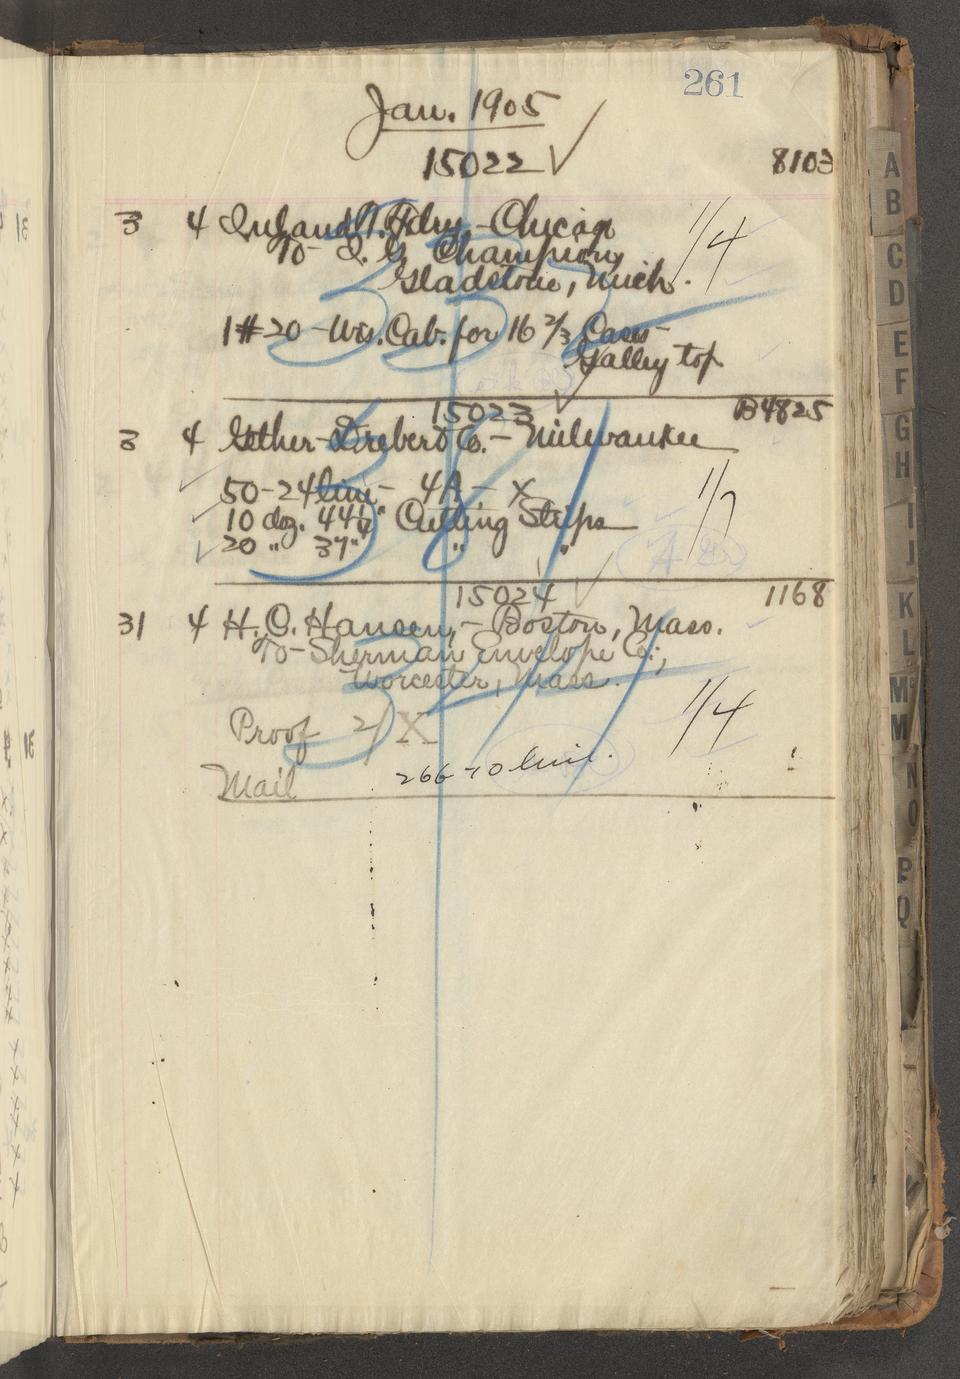 261
Jan. 1905
15022 ✓ 8103
3 4 Inland T. Fdry. - Chicago 1/4
To - I. G. Champion,
Gladstone, Mich.
1 #20 - Wis. Cab. for 16 2/3 Cases -
Galley top
15023 B4825
3 4 Gether-Drebert Co. - Milwaukee
50 - 24 line - 4A - X 1/7
10 doz. 44 1/4" Cutting Strips
20 " 37" " "
15024 1168
31 4 H. C. Hansen, - Boston, Mass.
To - Sherman Envelope Co.,
Worcester, Mass. 1/4
Proof 2/ X
Mail 266 - 10 line.
A
B
C
D
E
F
G
H
I
J
K
L
M
M
N
O
P
Q